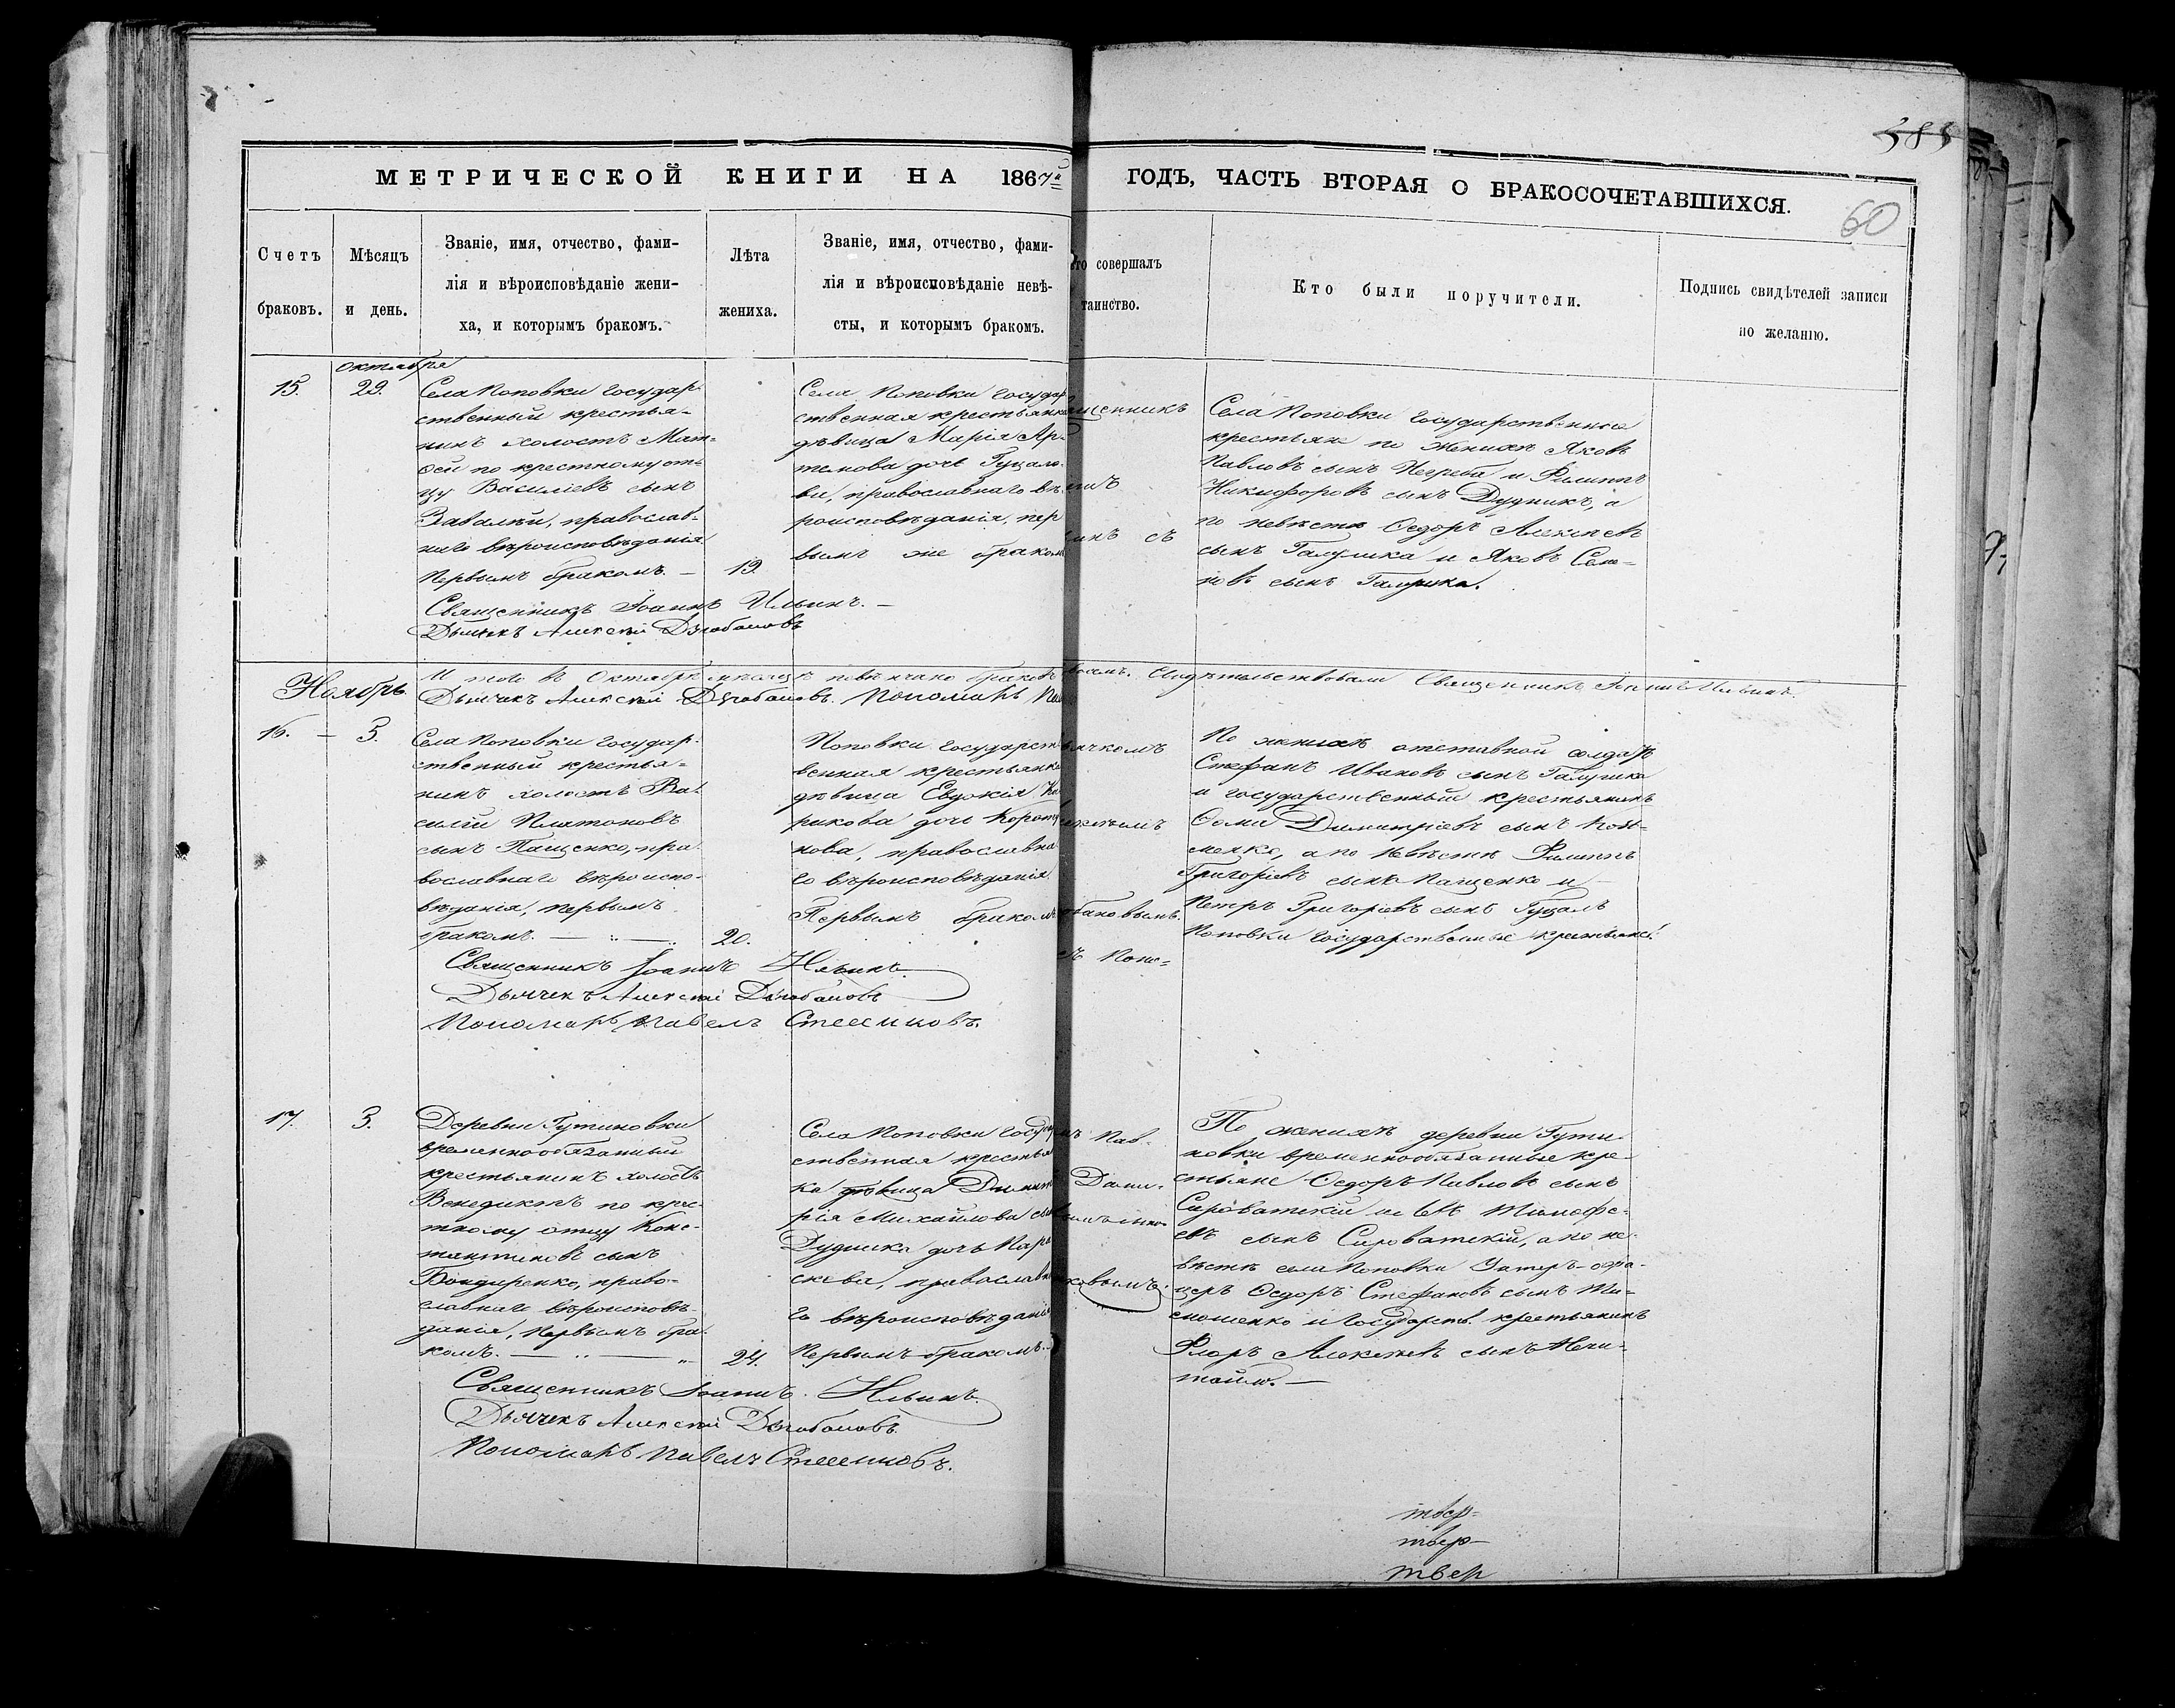 383
МЕТРИЧЕСКОЙ КНИГИ НА 1867й ГОДЪ, ЧАСТЬ ВТОРАЯ О БРАКОСОЧЕТАВШИХСЯ.
60
Счетъ
браковъ.
Мѣсяцъ
и день.
Званіе, имя, отчество, фами-
лія и вѣроисповѣданіе жени-
ха, и которымъ бракомъ.
Лѣта
жениха.
Званіе, имя, отчество, фами-
лія и вѣроисповѣданіе невѣ-
сты, и которымъ бракомъ.
то совершалъ
таинство.
Кто были поручители.
Подпись свидѣтелей записи
по желанію.
октября
15. 29.
Села Поповки государ-
ственный крестья-
нинъ холостъ Мат-
ѳей по крестному от-
цу Василіевъ сынъ
православ-
наго вѣроисповѣданія
Первымъ бракомъ. —
19.
Села Поповки государ
ственная крестьянка
дѣвица Марія Ар-
темова дочь Гуцало-
ва, православнаго вѣ-
роисповѣданія, пер
вымъ же бракомъ
щенникъ
инъ съ
Села Поповки государственные
крестьяне по женихѣ Яковъ
Павловъ сынъ Негреба и Филиппъ
Никифоровъ сынъ Дудникъ, а
по невѣстѣ Ѳедоръ Алексѣевъ
сынъ Галушка и Яковъ Семе-
новъ сынъ Галушка.
Священникъ Іоаннъ Ильинъ. —
Дьячекъ Алексѣй Дзюбановъ
Ноябрь
И того въ Октябрѣ мѣсяцѣ повѣнчано браковъ восемь. Свидѣтельствовали Священникъ Іоаннъ Ильинъ.
Дьячекъ Алексѣй Дзюбановъ. Пономарь
16. — 3.
Села Поповки государ-
ственный крестья-
нинъ холостъ Ва-
силій Платоновъ
сынъ Пащенко, пра-
вославнаго вѣроиспо-
вѣданія, первымъ
бракомъ.
20.
Поповки государст
венная крестьянка
дѣвица Евдокія
рикова дочь Корот
кова, православна
го вѣроисповѣданія
Первымъ бракомъ
ячкомъ
бановымъ.
Поно-
По женихѣ отставной солдатъ
Стефанъ Ивановъ сынъ Галушка
и государственный крестьянинъ
Ѳома Димитріевъ сынъ
а по невѣстѣ Филиппъ
Григоріевъ сынъ Пащенко и
Петръ Григоріевъ сынъ Гуцалъ
Поповки государственные крестьяне.
Священникъ Іоаннъ Ильинъ.
Дьячекъ Алексѣй Дзюбановъ
Пономарь Павелъ
17. 3.
Деревни Гутиновки
временнообязанный
крестьянинъ холостъ
Венедиктъ по крес-
тному отцу Конс-
тантиновъ сынъ
Бондаренко, право-
славнаго вѣроисповѣ-
данія, первымъ бра-
комъ.
24.
Села Поповки госуда
ственная крестьян
ка дѣвица Димит
рія Михайлова
Дудника дочь Пара
скева, православна
го вѣроисповѣданія
Первымъ бракомъ.
Пав-
По женихѣ деревни Гути-
новки временнообязанные кре-
стьяне Ѳедоръ Павловъ сынъ
Сыроватскій и Тимофе-
евъ сынъ Сыроватскій, а по не-
вѣстѣ села Поповки Унтеръ-офи-
церъ Ѳедоръ Стефановъ сынъ Ти-
мошенко и государств. крестьянинъ
Флоръ Алексѣевъ сынъ Нечи-
тайло. —
Священникъ Іоаннъ Ильинъ.
Дьячекъ Алексѣй Дзюбановъ.
Пономарь Павелъ
твер-
твер-
твер